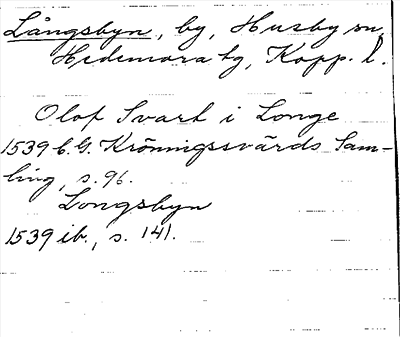 Långsbyn, by, Husby sn,
Hedemora tg, Kopp. l.
Olof Svart i Longe
1539 C.G. Kröningssvärds Sam-
ling, s. 96.
Longsbyn
1539 ib., s. 141.